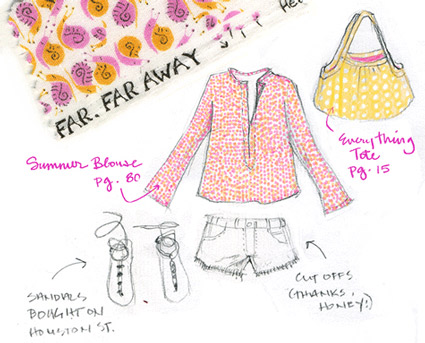 FAR, FAR AWAY
Summer Blouse
pg. 80
Everything
Tote
pg. 15
SANDALS
BOUGHT ON
HOUSTON ST.
CUT OFFS
(THANKS,
HONEY!)